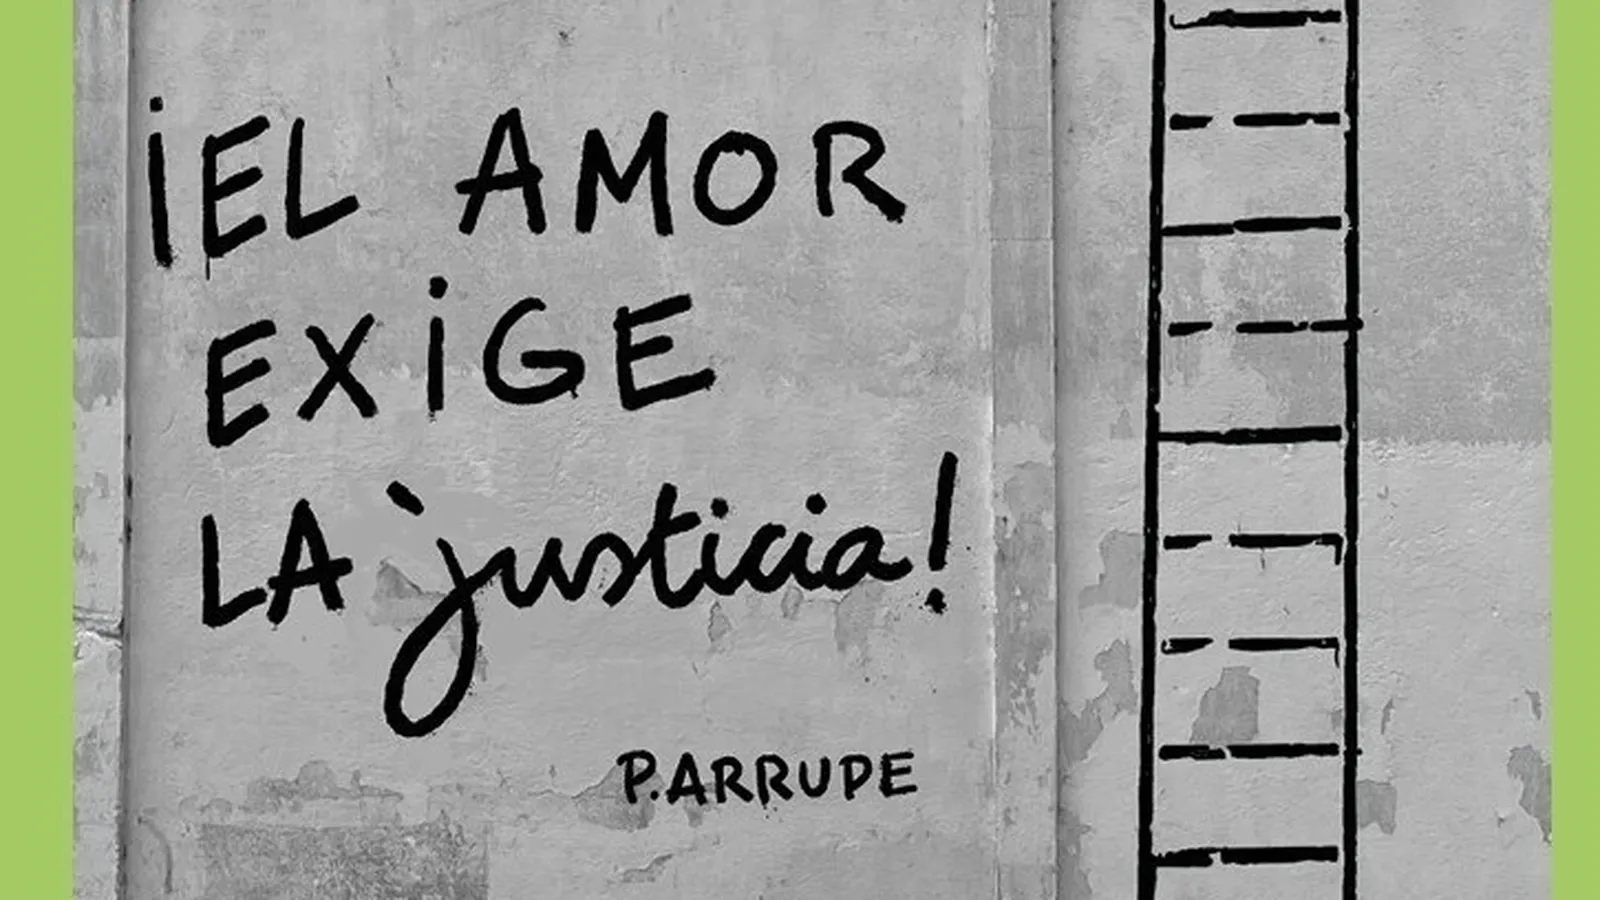 ¡EL AMOR
EXIGE
LA justicia!
P. ARRUPE